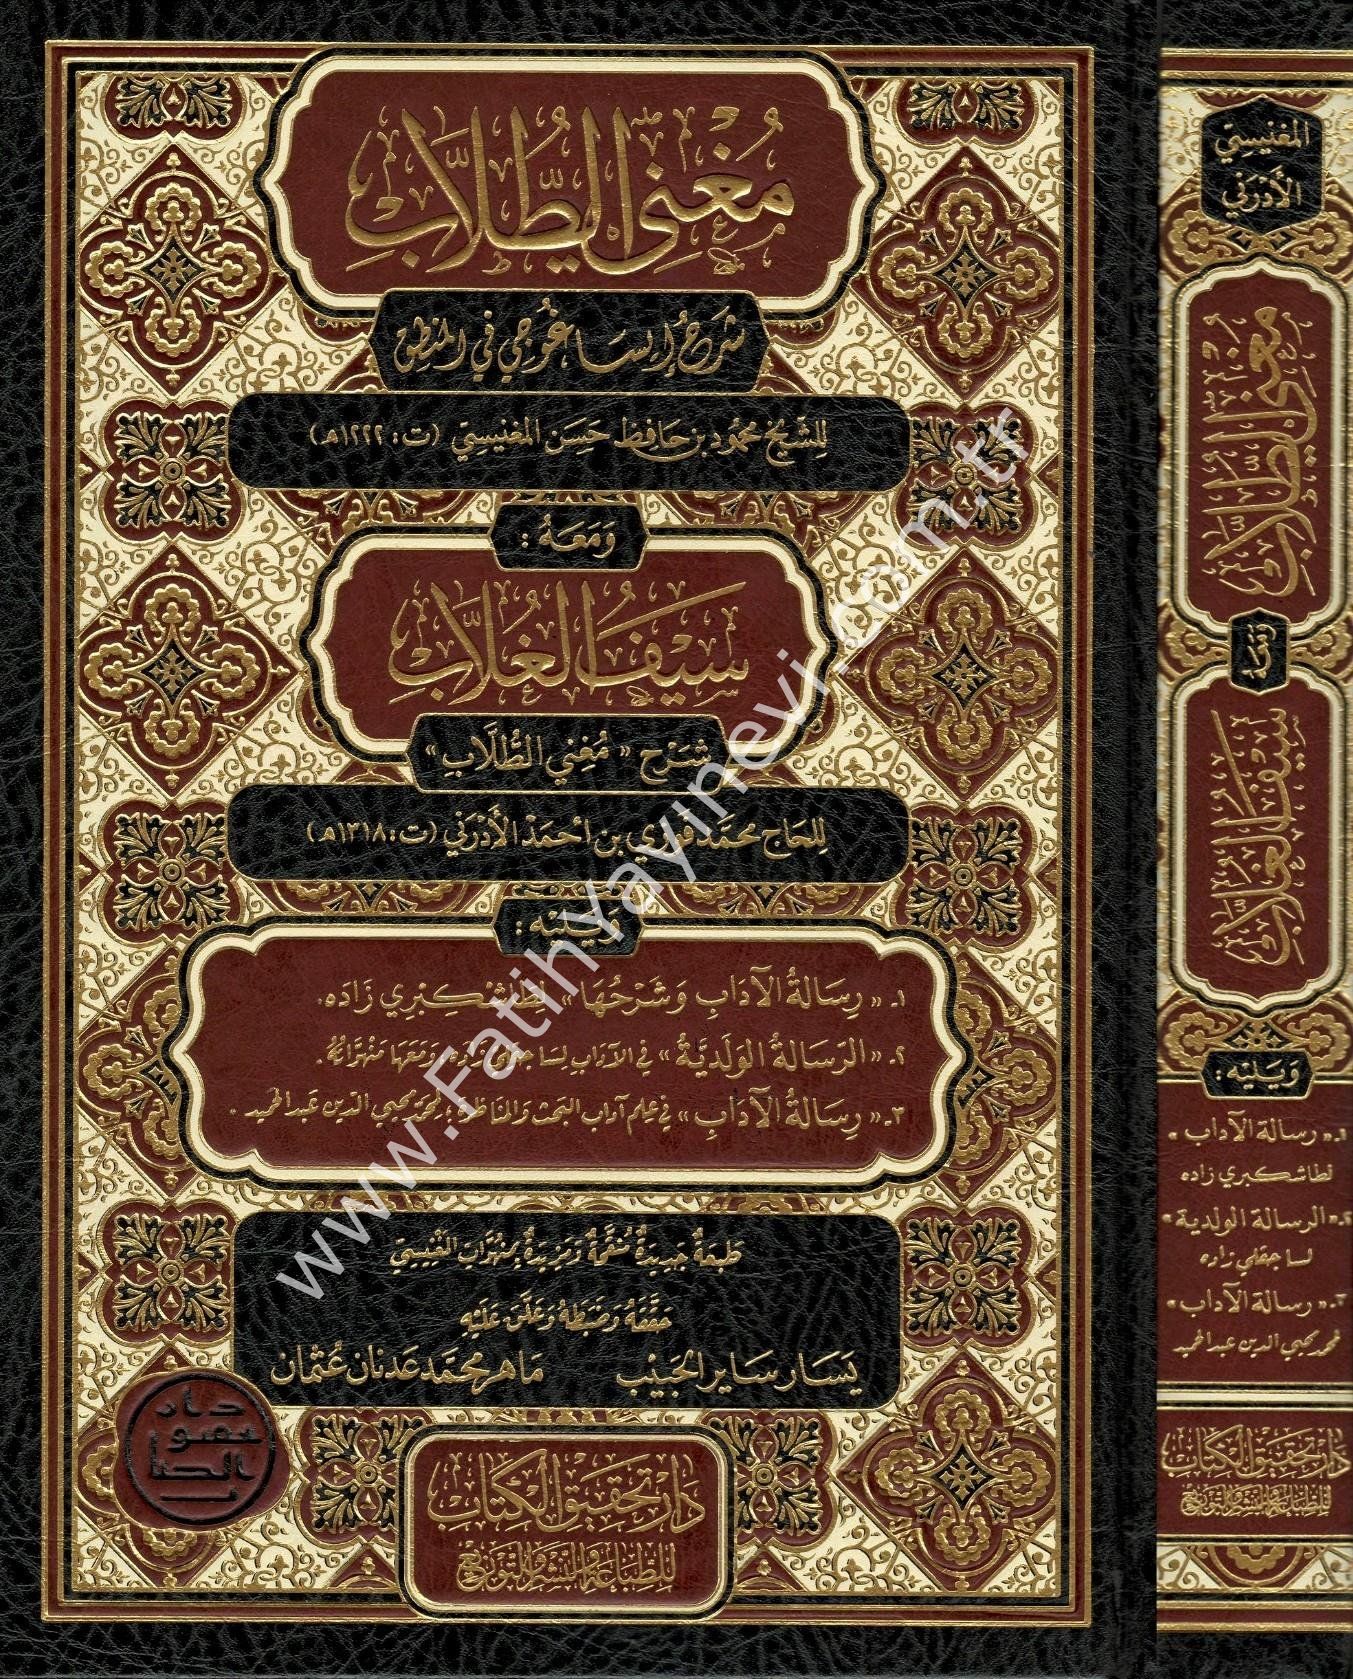 مُغْنِي الطُّلَّابِ
شَرْحُ إِيسَاغُوجِي فِي المَنْطِقِ
لِلشَّيْخِ مَحْمُود بْن حَافِظ حَسَن المَغْنِيسِيّ (ت: ١٢٢٢هـ)
وَمَعَهُ:
سَيْفُ الغُلَّابِ
شَرْح «مُغْنِي الطُّلَّابِ»
لِلحَاج مُحَمَّد فَوْزِي بن أَحْمَد الأَدْرَنِي (ت: ١٣١٨هـ)
وَيَلِيْهِ:
١ـ «رِسَالَةُ الآدَابِ وَشَرْحُهَا» لِطَاشْكُبْرِي زَادَه.
٢ـ «الرِّسَالَةُ الوَلَدِيَّةُ» فِي الآدَابِ لِسَاجَقْلِي زَادَه وَمَعَهَا مَنْهُوَّاتُهُ.
٣ـ «رِسَالَةُ الآدَابِ» فِي عِلْمِ آدَابِ البَحْثِ وَالمُنَاظَرَةِ؛ لِمُحَمَّد مُحْيِي الدِّين عَبْد الحَمِيد.
طَبْعَةٌ جَدِيدَةٌ مُنَقَّحَةٌ وَمَزِيدَةٌ بِمَنْهُوَّاتِ المَغْنِيسِيّ
حَقَّقَهُ وَضَبَطَهُ وَعَلَّقَ عَلَيْهِ
يَسَار سَايِر الحَبِيْب
مَاهِر مُحَمَّد عَدْنَان عُثْمَان
دَارُ تَحْقِيقِ الكِتَاب
لِلطِّبَاعَةِ وَالنَّشْرِ وَالتَّوْزِيعِ
دار
الصبا
المغنيسيّ
الأَدْرَنِي
مُغْنِي الطُّلَّابِ
وَمَعَهُ
سَيْفُ الغُلَّابِ
وَيَلِيْهِ:
١ـ «رسالة الآداب»
لطاشكبري زاده
٢ـ «الرسالة الولدية»
لساجقلي زاده
٣ـ «رسالة الآداب»
لمحمد محيي الدين عبد الحميد
دَارُ تَحْقِيقِ الكِتَاب
لِلطِّبَاعَةِ وَالنَّشْرِ وَالتَّوْزِيعِ
www.FatihYayinevi.com.tr